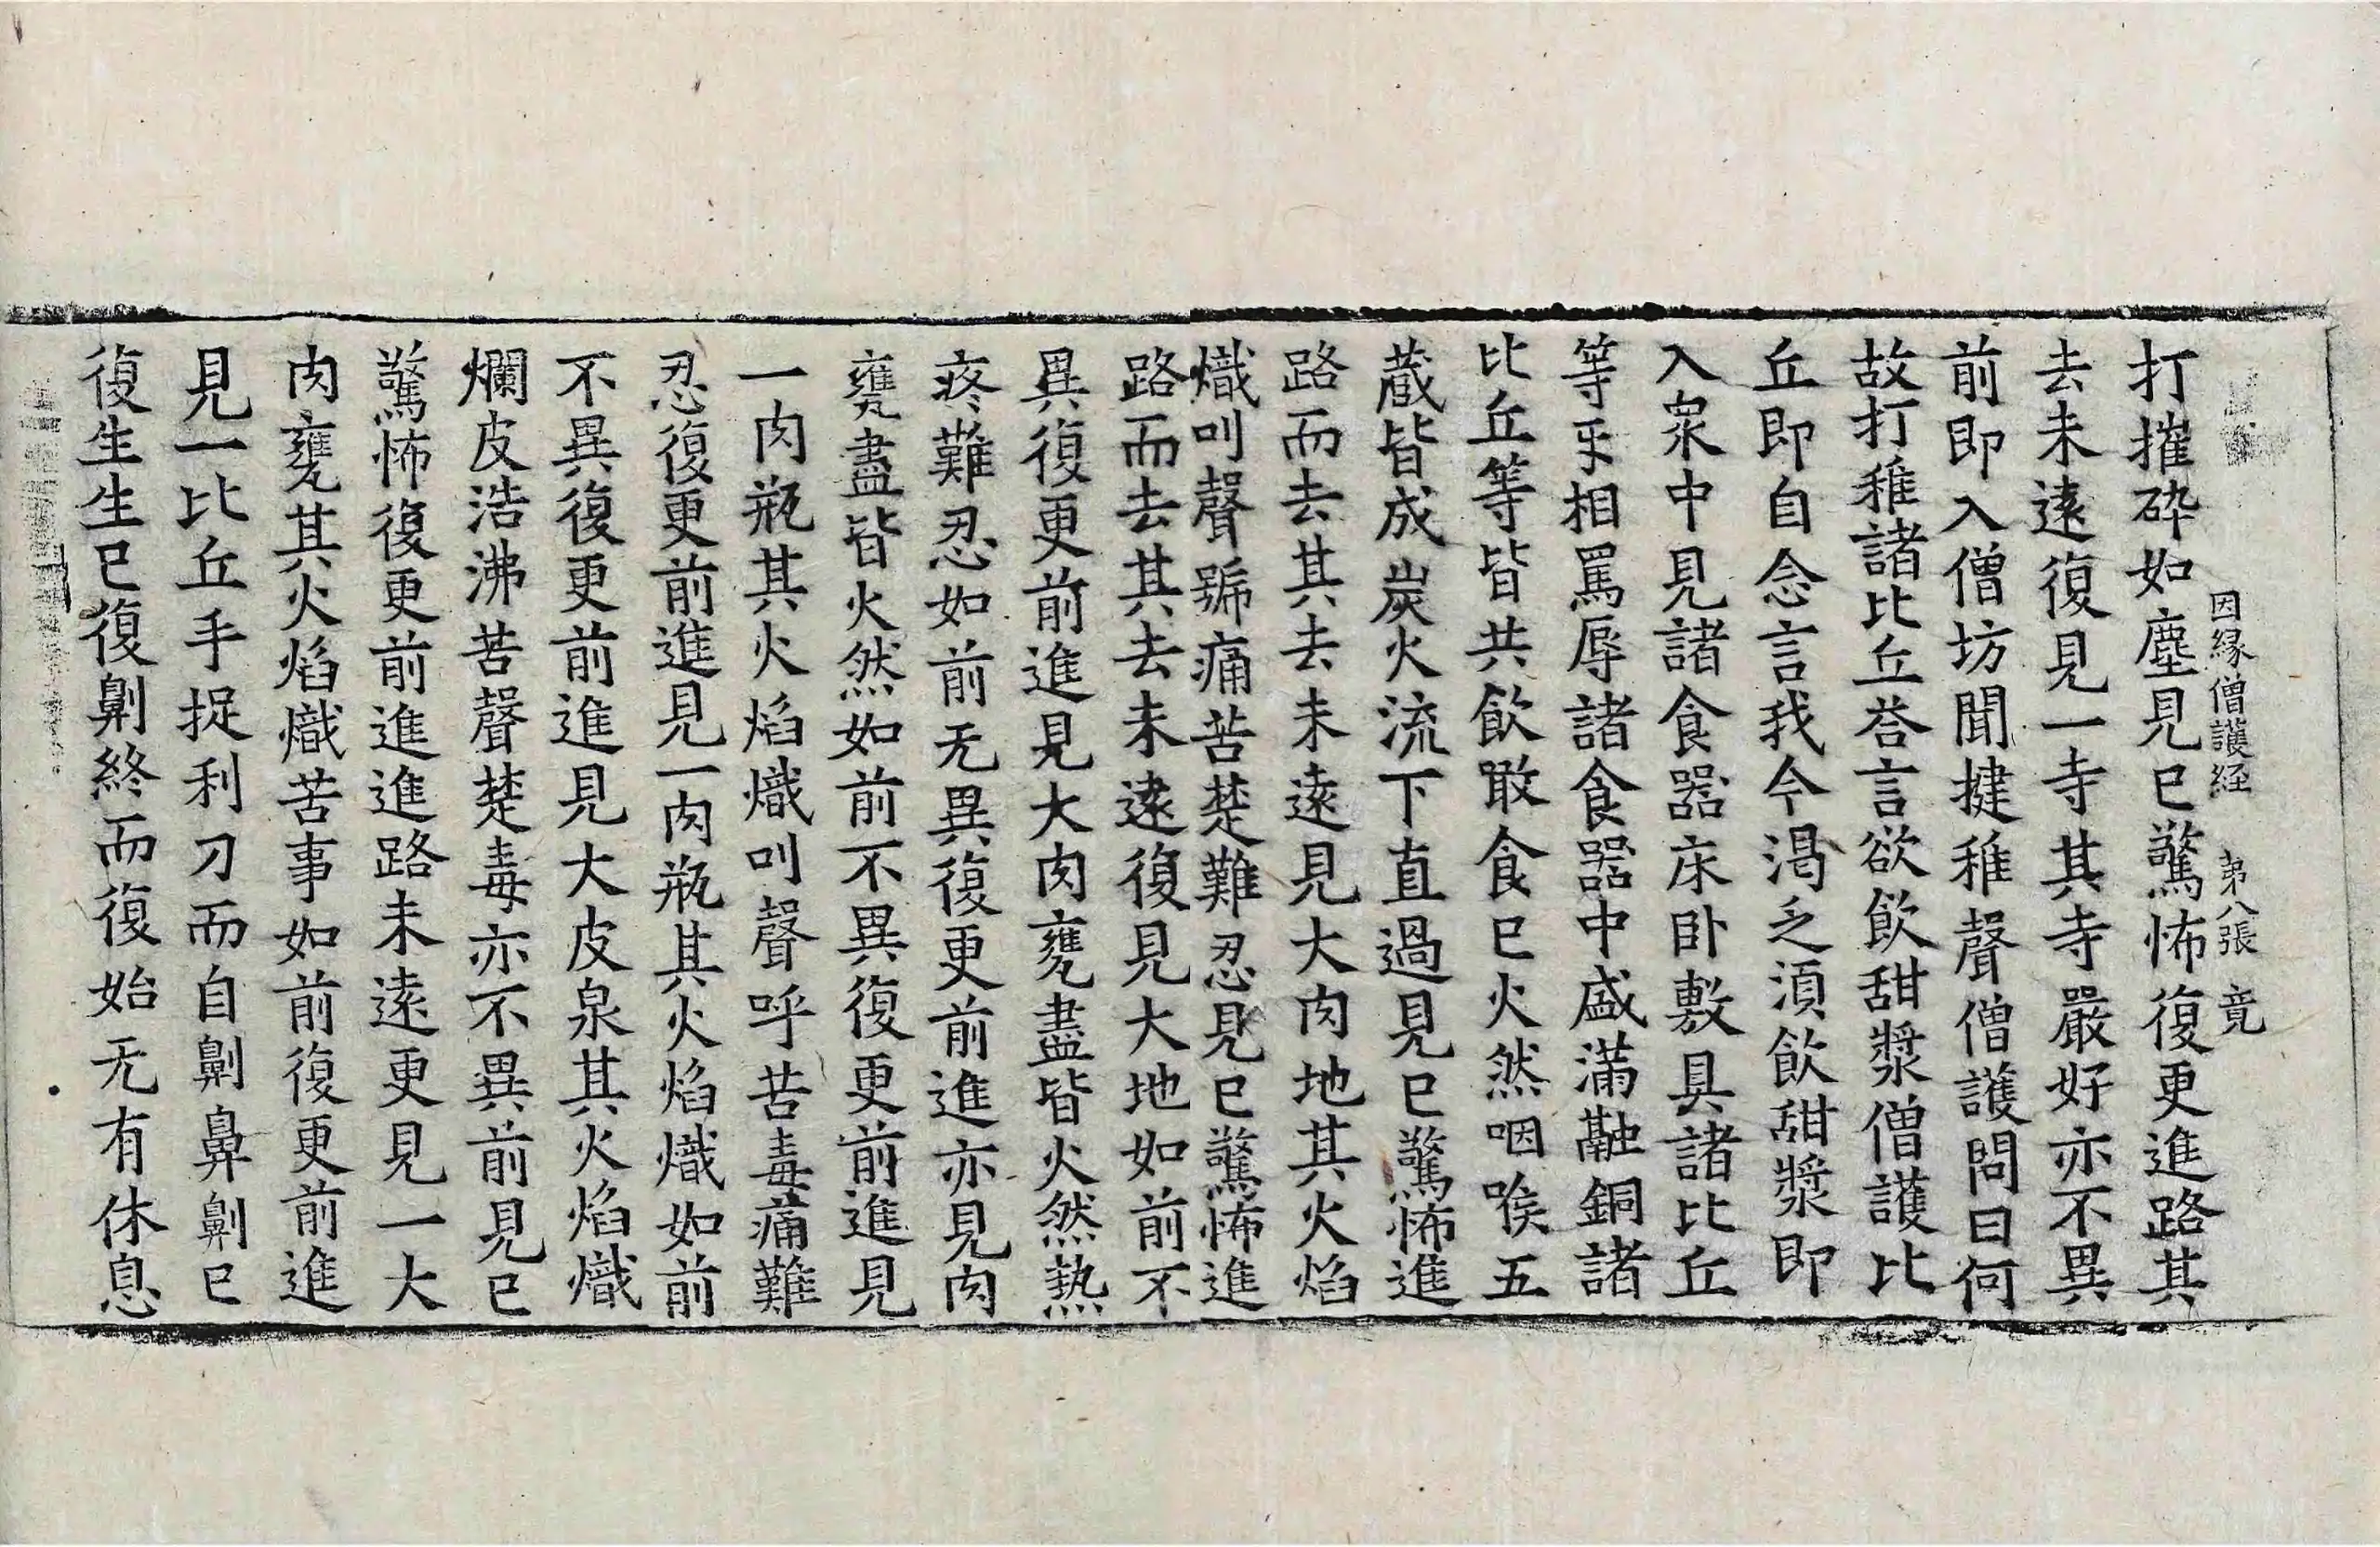 因縁僧護経 第八張 竟
打摧碎如塵見已驚怖復更進路其
去未遠復見一寺其寺嚴好亦不異
前即入僧坊聞揵稚聲僧護問曰何
故打稚諸比丘荅言欲飲甜漿僧護比
丘即自念言我今渴乏湏飲甜漿即
入衆中見諸食器床卧敷具諸比丘
等乎相罵辱諸食器中盛滿融銅諸
比丘等皆共飲噉食已火然咽喉五
蔵皆成炭火流下直過見已驚怖進
路而去其去未遠見大肉地其火焰
熾叫聲號痛苦楚難忍見已驚怖進
路而去其去未遠復見大地如前不
異復更前進見大肉甕盡皆火然熱
疼難忍如前无異復更前進亦見肉
甕盡皆火然如前不異復更前進見
一肉瓶其火焰熾叫聲呼苦毒痛難
忍復更前進見一肉瓶其火焰熾如前
不異復更前進見大皮泉其火焰熾
爛皮浩沸苦聲楚毒亦不異前見已
驚怖復更前進進路未遠更見一大
肉甕其火焰熾苦事如前復更前進
見一比丘手捉利刀而自劓鼻劓已
復生生已復劓終而復始无有休息